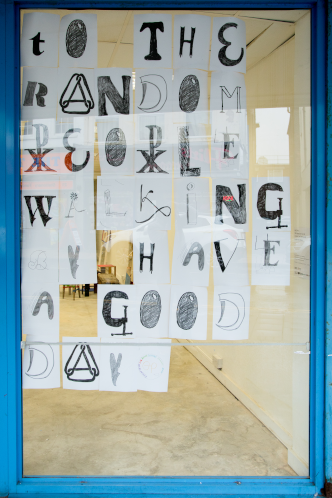 tO THE
RANDOM
PEOPLE
WALKiNG
BY HAVE
A GOOD
DAY